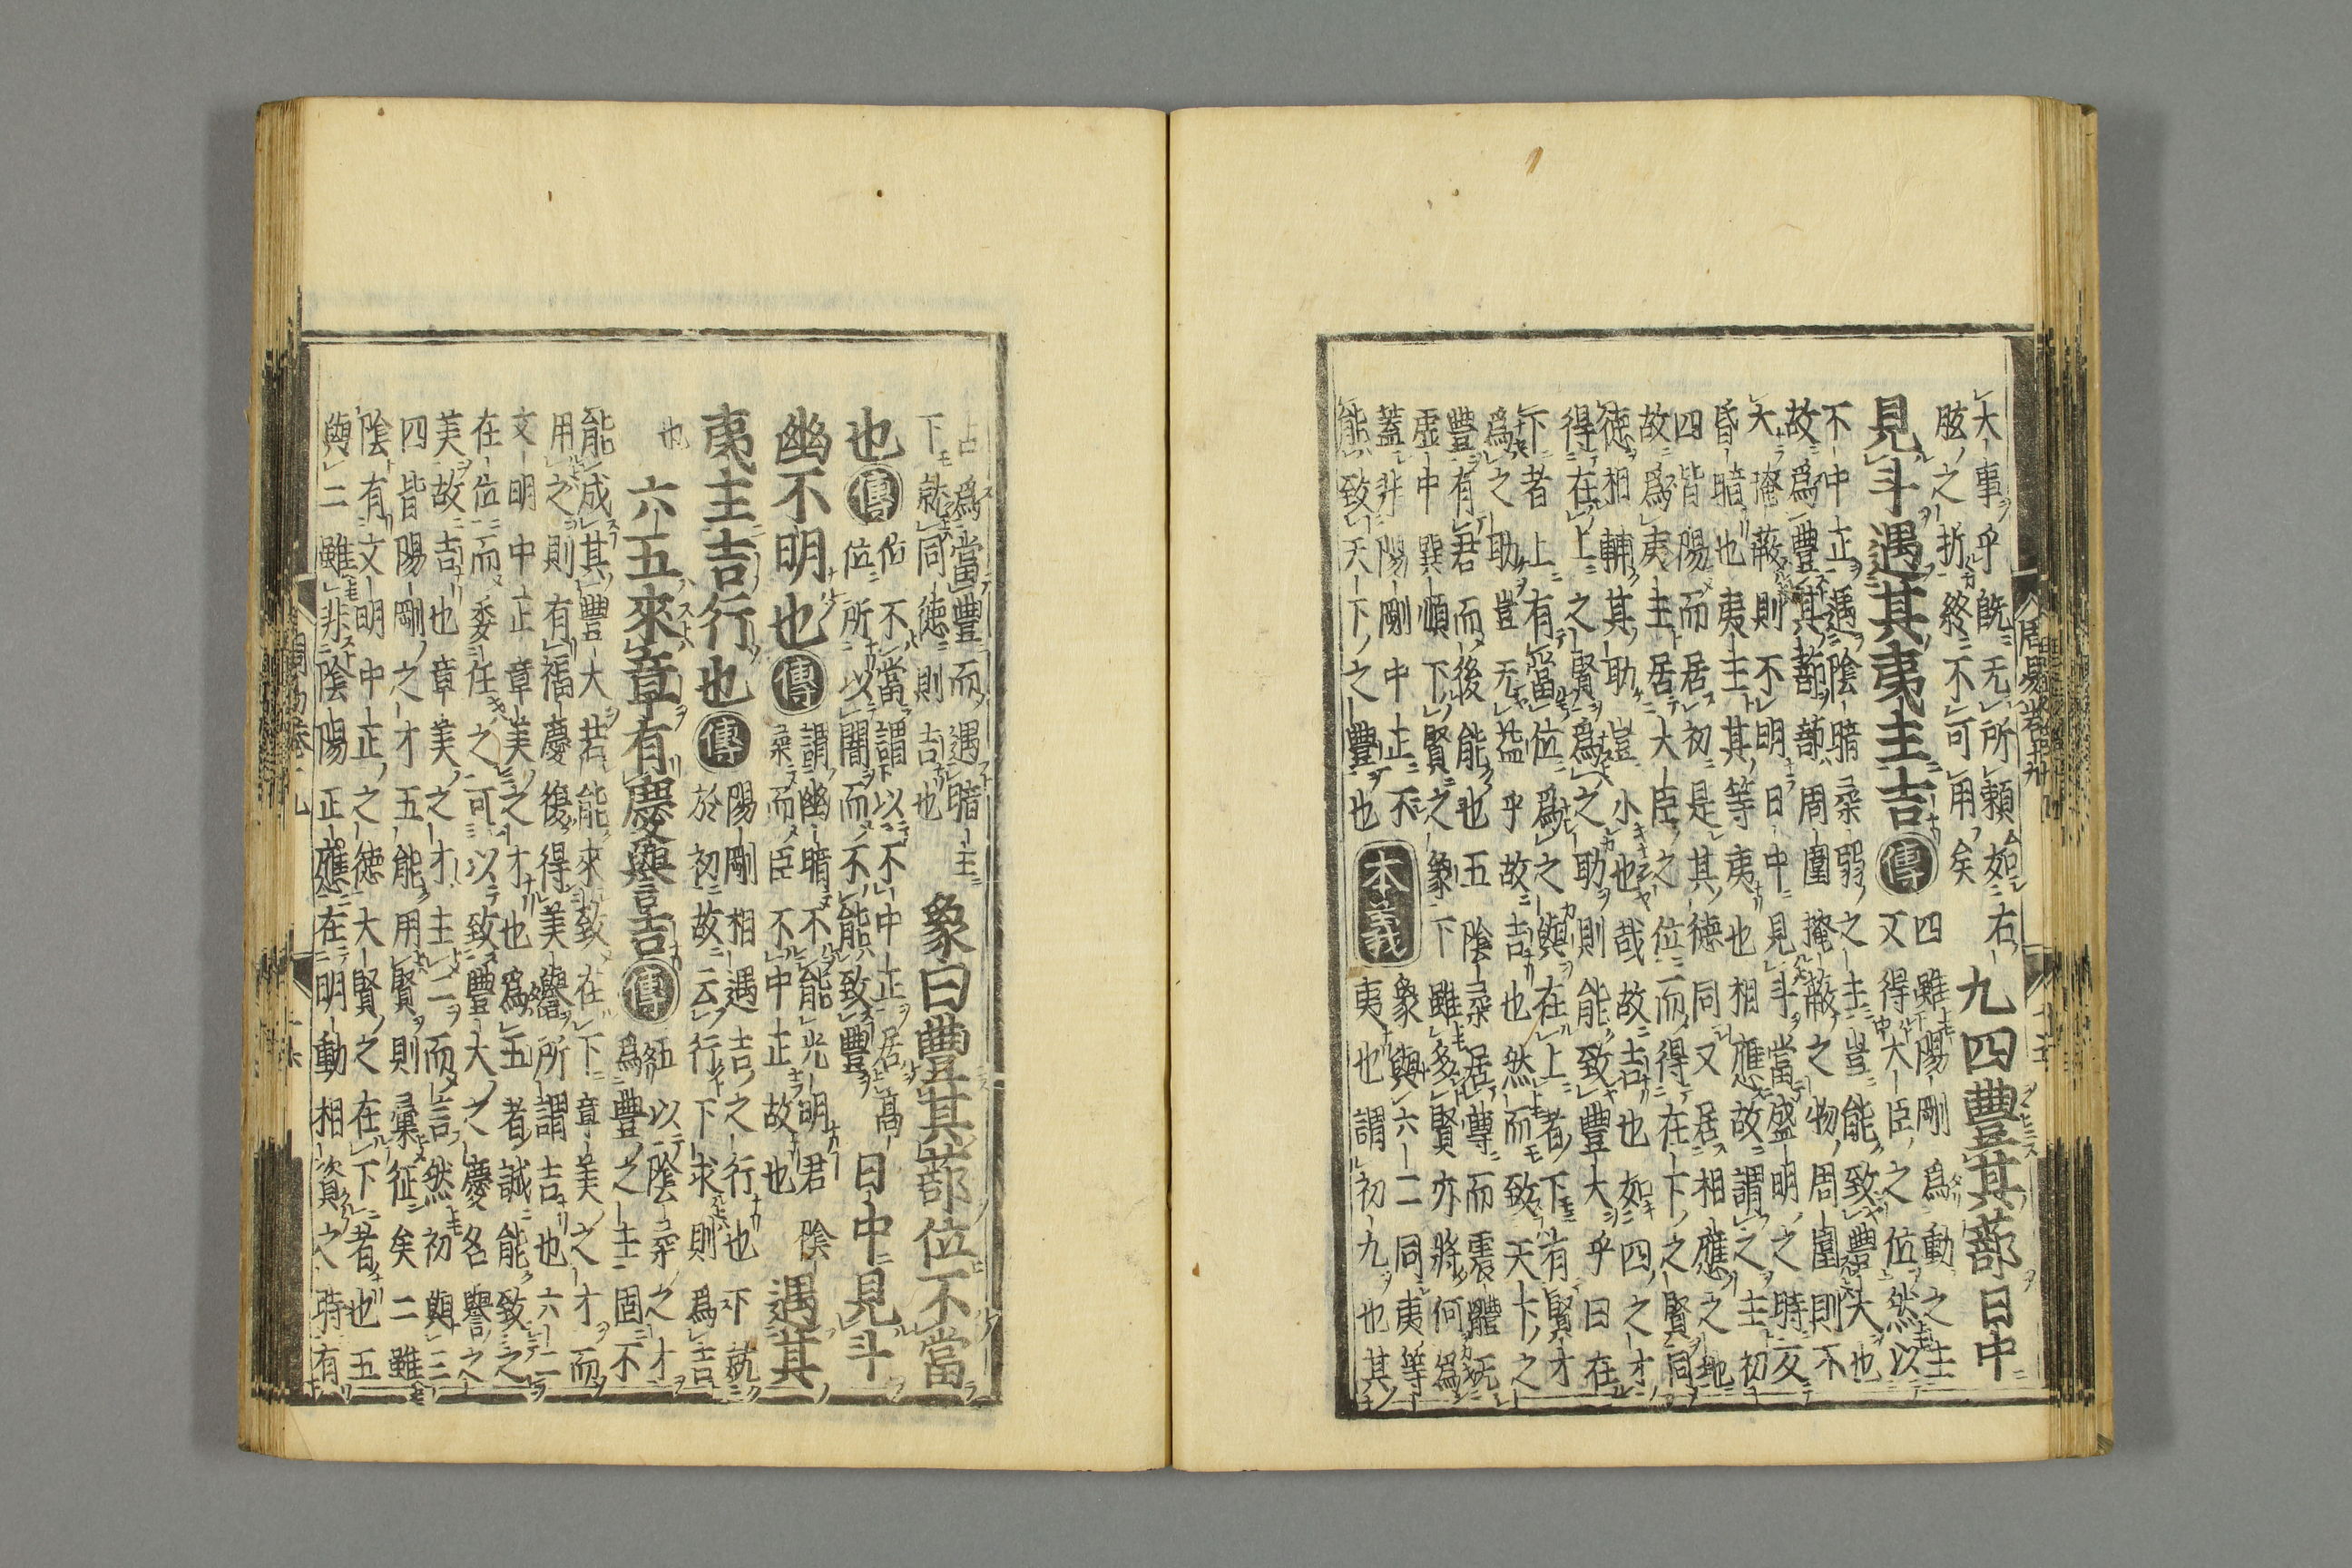 大事乎既无所頼如右
肱之折終不可用矣
九四豐其蔀日中
見斗遇其夷主吉 傳
四雖陽剛爲動之主
又得大臣之位然以
不中正遇陰暗柔弱之主豈能致豐大也
故爲豐其蔀蔀周圍掩蔽之物周圍則不
大掩蔽則不明日中見斗當盛明之時反
昏暗也夷主其等夷也相應故謂之主初
四皆陽而居初是其德同又居相應之地
故爲夷主居大臣之位而得在下之賢同
德相輔其助豈小也哉故吉也如四之才
得在上之賢爲之助則能致豐大乎曰在
下者上有當位爲之與在上者下有賢才
爲之助豈无益乎故吉也然而致天下之
豐有君而後能也五陰柔居尊而震體无
虛中巽順下賢之象下雖多賢亦將何爲
蓋非陽剛中正不
能致天下之豐也
本義
象與六二同夷等
夷也謂初九也其
占爲當豐而遇暗主
下就同德則吉也
象曰豐其蔀位不當
也 傳
位不當謂以不中正居高
位所以闇而不能致豐
日中見斗
幽不明也 傳
謂幽暗不能光明君陰
柔而臣不中正故也
遇其
夷主吉行也 傳
陽剛相遇吉之行也下就
於初故云行下求則爲吉
也
六五來章有慶譽吉 傳
五以陰柔之才
爲豐之主固不
能成其豐大若能來致在下章美之才而
用之則有福慶復得美譽所謂吉也六二
文明中正章美之才也爲五者誠能致之
在位而委任之可以致豐大之慶名譽之
美故吉也章美之才主二而言然初與三
四皆陽剛之才五能用賢則彙征矣二雖
陰有文明中正之德大賢之在下者也五
與二雖非陰陽正應在明動相資之時有